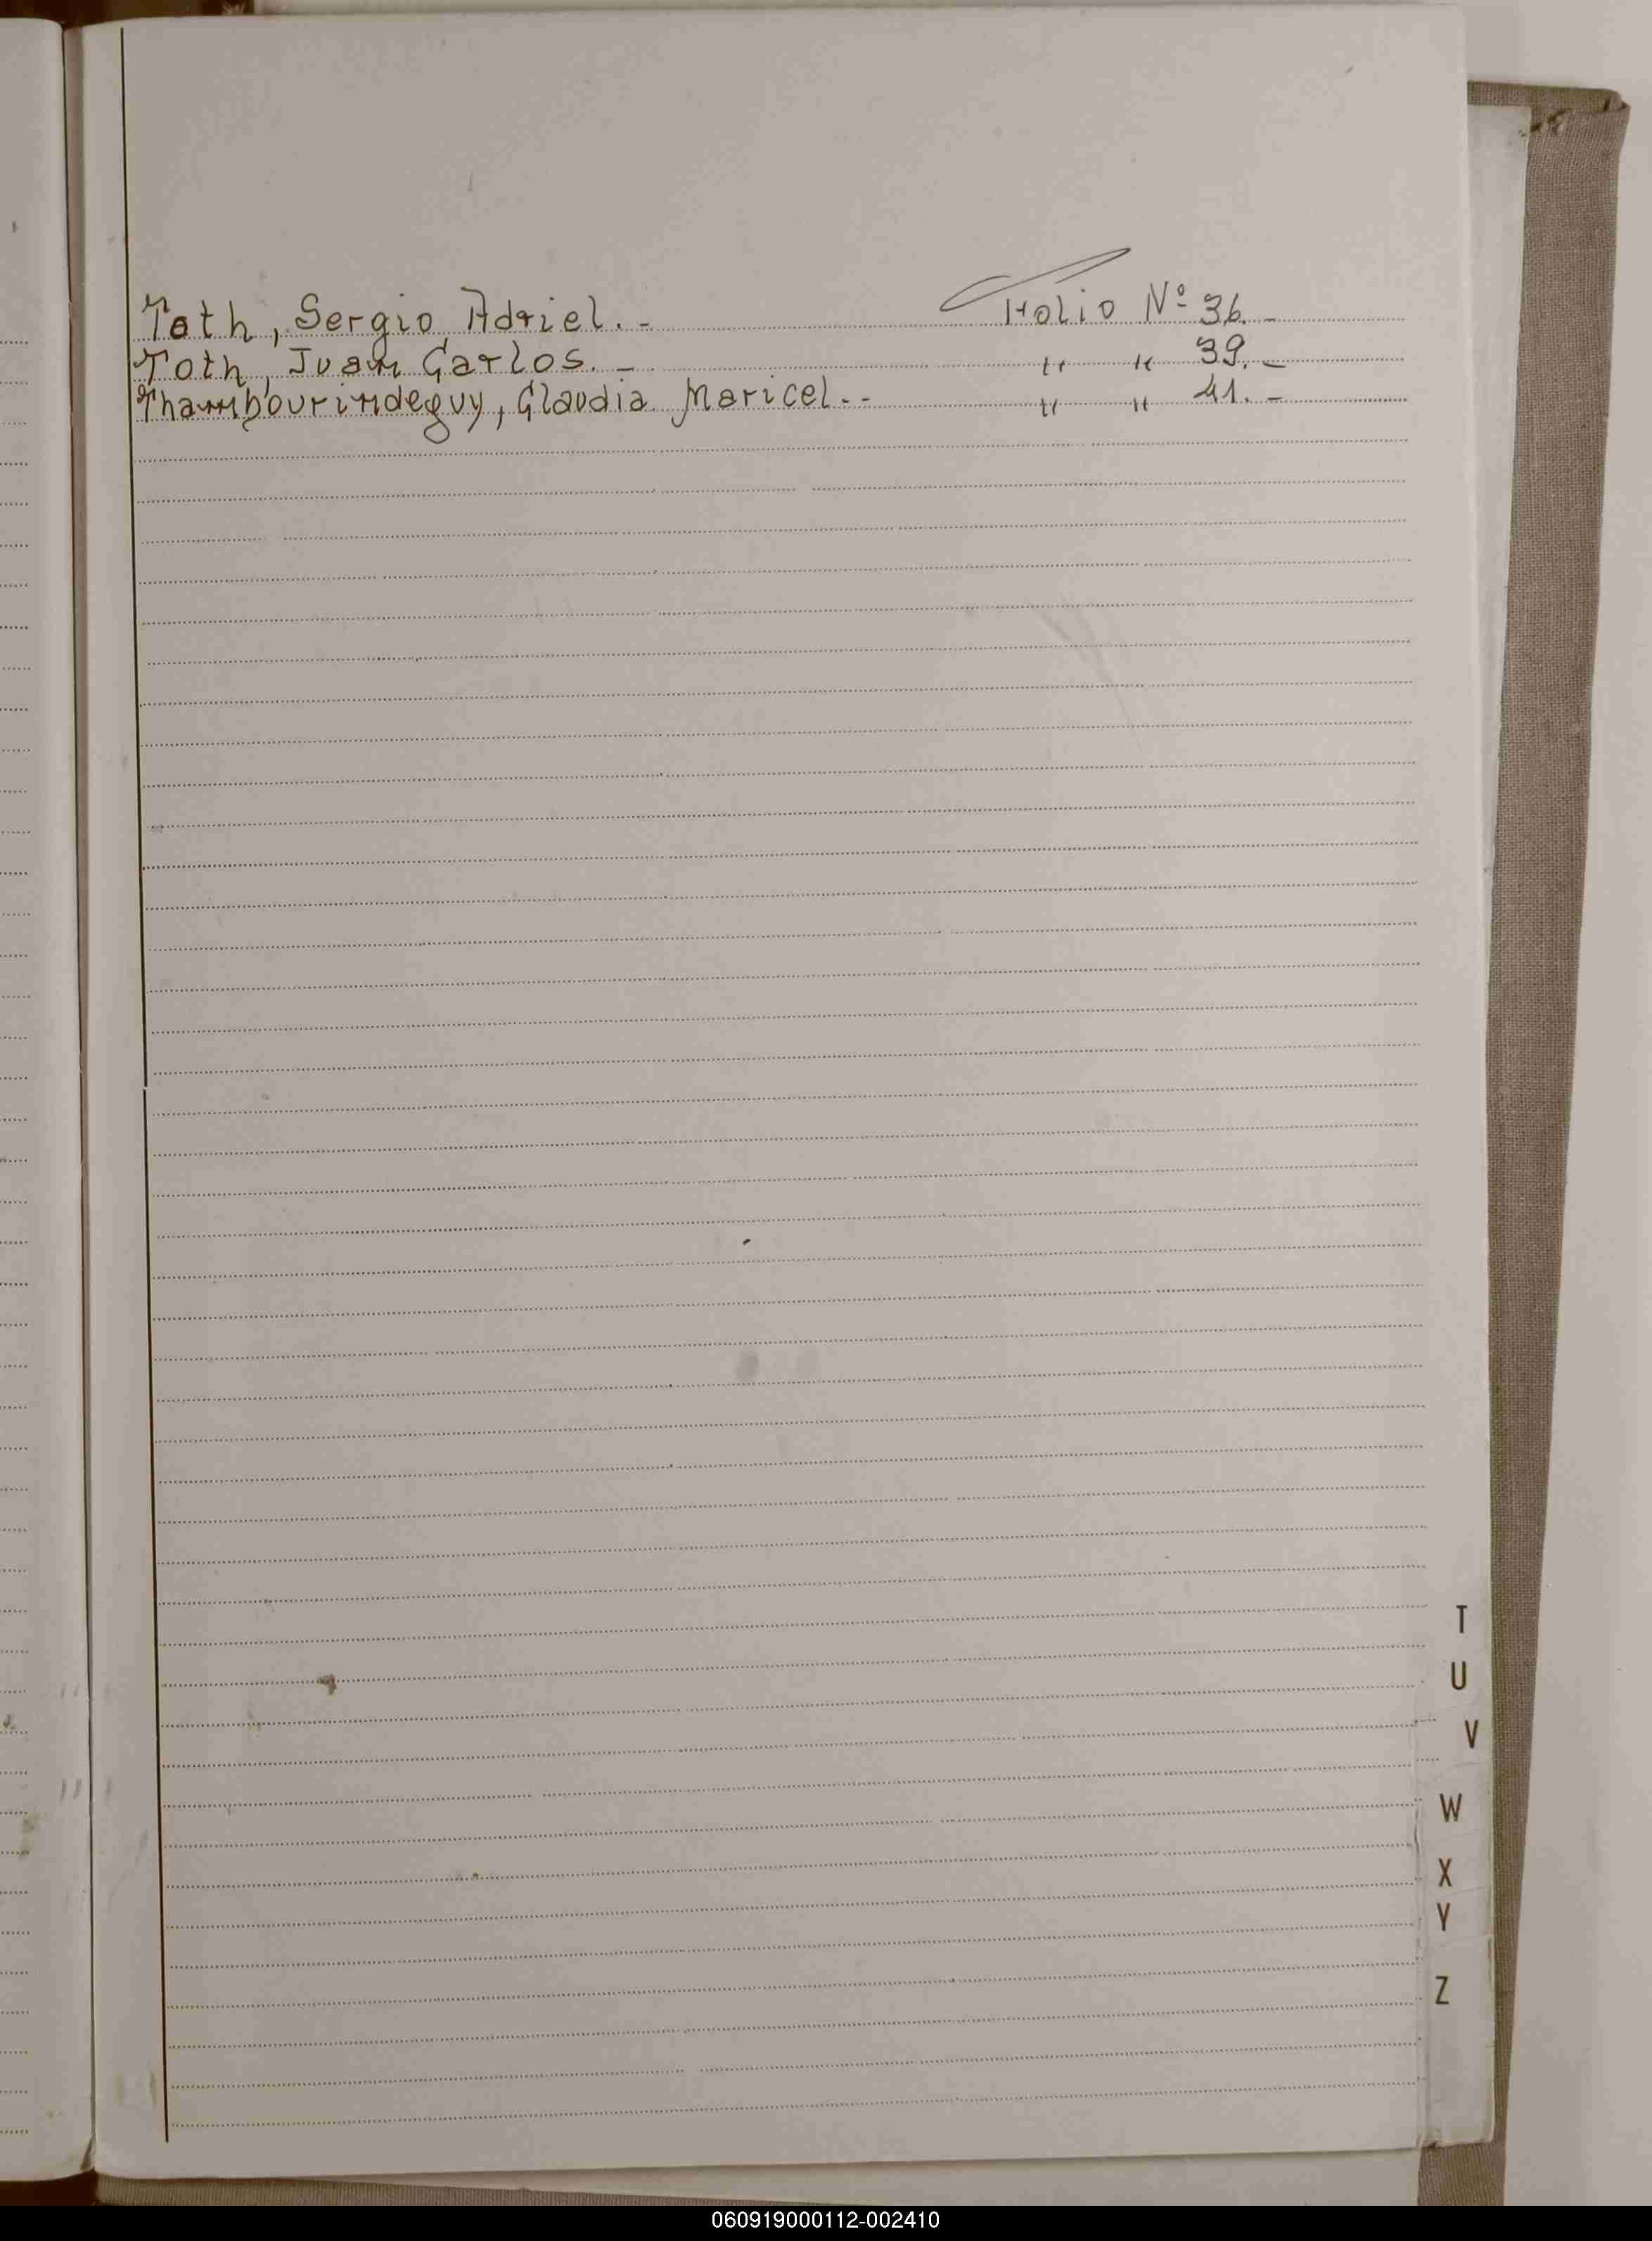 Toth, Sergio Adriel.- Folio Nº 36.-
Toth, Juan Carlos.- " " 39.-
Thambourindeguy, Claudia Maricel.-- " " 41.-
T
U
V
W
X
Y
Z
060919000112-002410